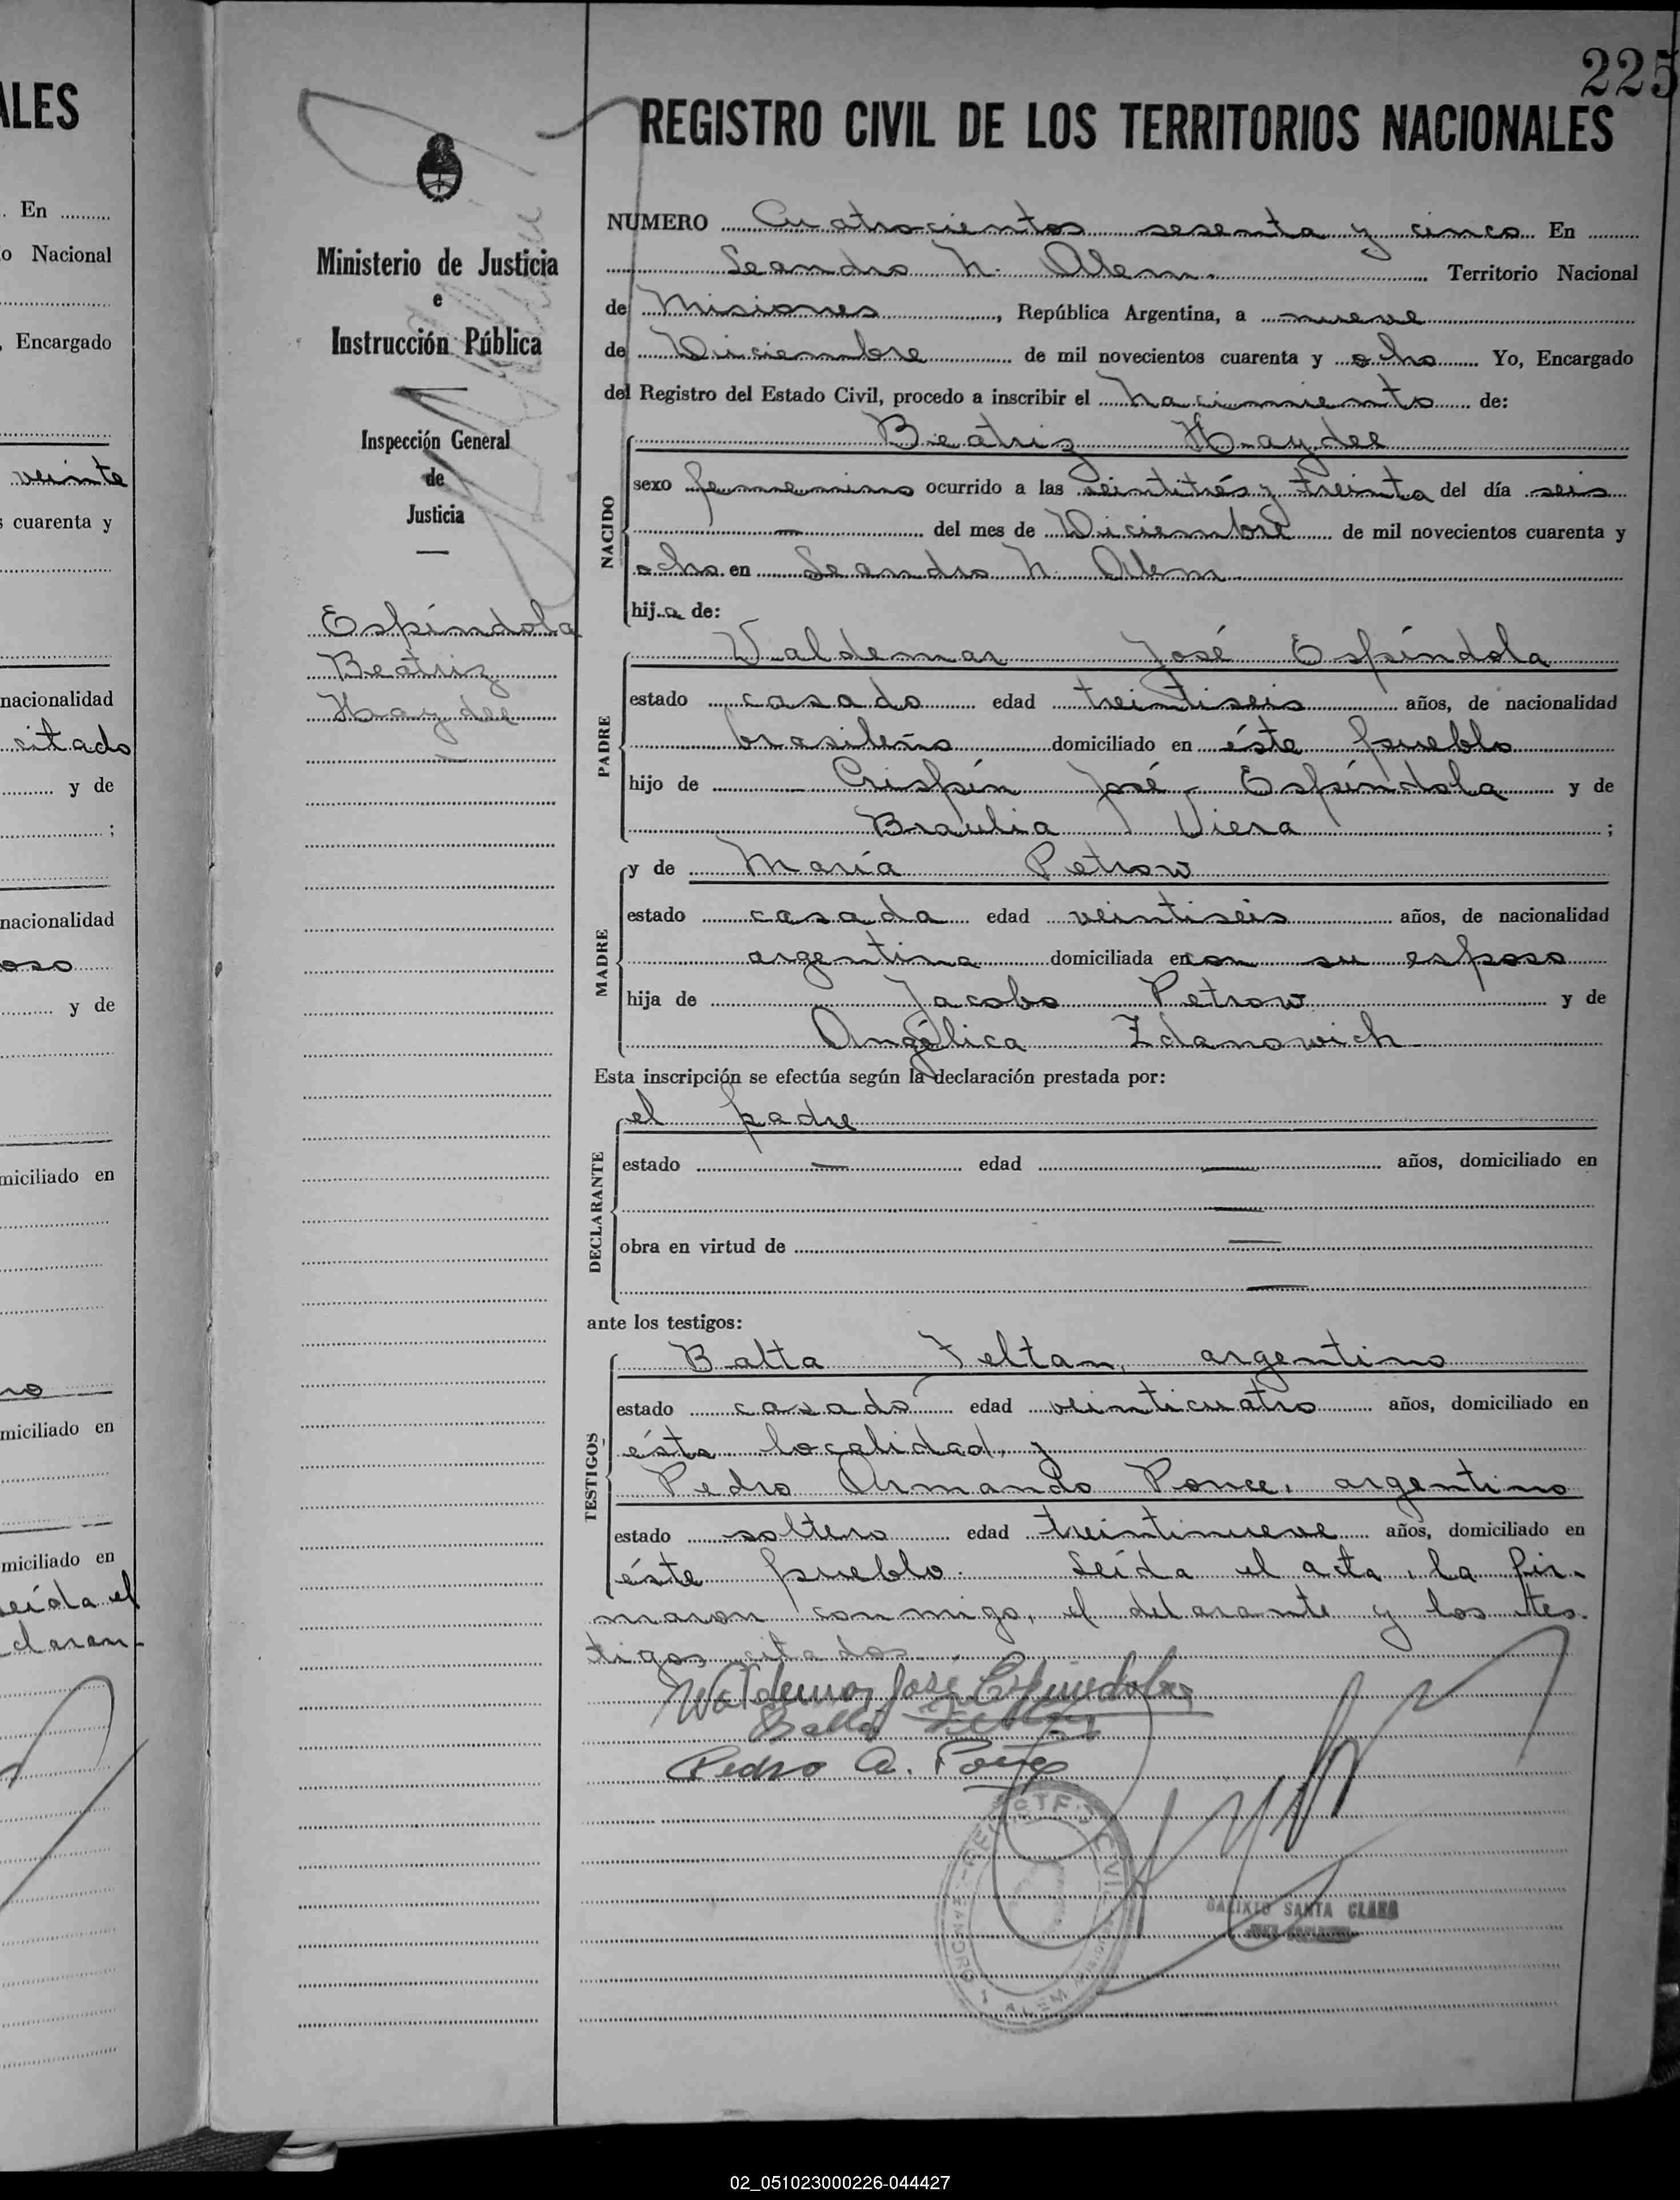 225
ALES
REGISTRO CIVIL DE LOS TERRITORIOS NACIONALES
. En
o Nacional
, Encargado
veinte
s cuarenta y
nacionalidad
citado
y de
;
nacionalidad
oso
y de
miciliado en
no
miciliado en
miciliado en
leída el
claran-
Ministerio de Justicia
e
Instrucción Pública
Inspección General
de
Justicia
Espíndola
Beatriz
Haydee
NUMERO Cuatrocientos sesenta y cinco En
Leandro N. Alem. Territorio Nacional
de Misiones, República Argentina, a nueve
de Diciembre de mil novecientos cuarenta y ocho Yo, Encargado
del Registro del Estado Civil, procedo a inscribir el nacimiento de:
NACIDO
Beatriz Haydee
sexo femenino ocurrido a las veintitrés y treinta del día seis
— del mes de Diciembre de mil novecientos cuarenta y
ocho en Leandro N. Alem
hija de:
PADRE
Waldemar José Espíndola
estado casado edad treintiseis años, de nacionalidad
brasileño domiciliado en éste pueblo
hijo de Crispín José Espíndola y de
Braulia Viera ;
MADRE
y de María Petrow
estado casada edad veintiseis años, de nacionalidad
argentina domiciliada en con su esposo
hija de Jacobo Petrow y de
Angélica Zdanowich
Esta inscripción se efectúa según la declaración prestada por:
DECLARANTE
el padre
estado — edad — años, domiciliado en
—
obra en virtud de —
—
ante los testigos:
TESTIGOS
Balta Feltan, argentino
estado casado edad veinticuatro años, domiciliado en
ésta localidad, y
Pedro Armando Ponce, argentino
estado soltero edad treintinueve años, domiciliado en
éste pueblo. Leída el acta, la fir-
maron conmigo, el delarante y los tes-
tigos citados
Waldemar José Espindola
Balta Feltan
Pedro A. Ponce
REGISTRO CIVIL
ALEM
CALIXTO SANTA CLARA
02_051023000226-044427